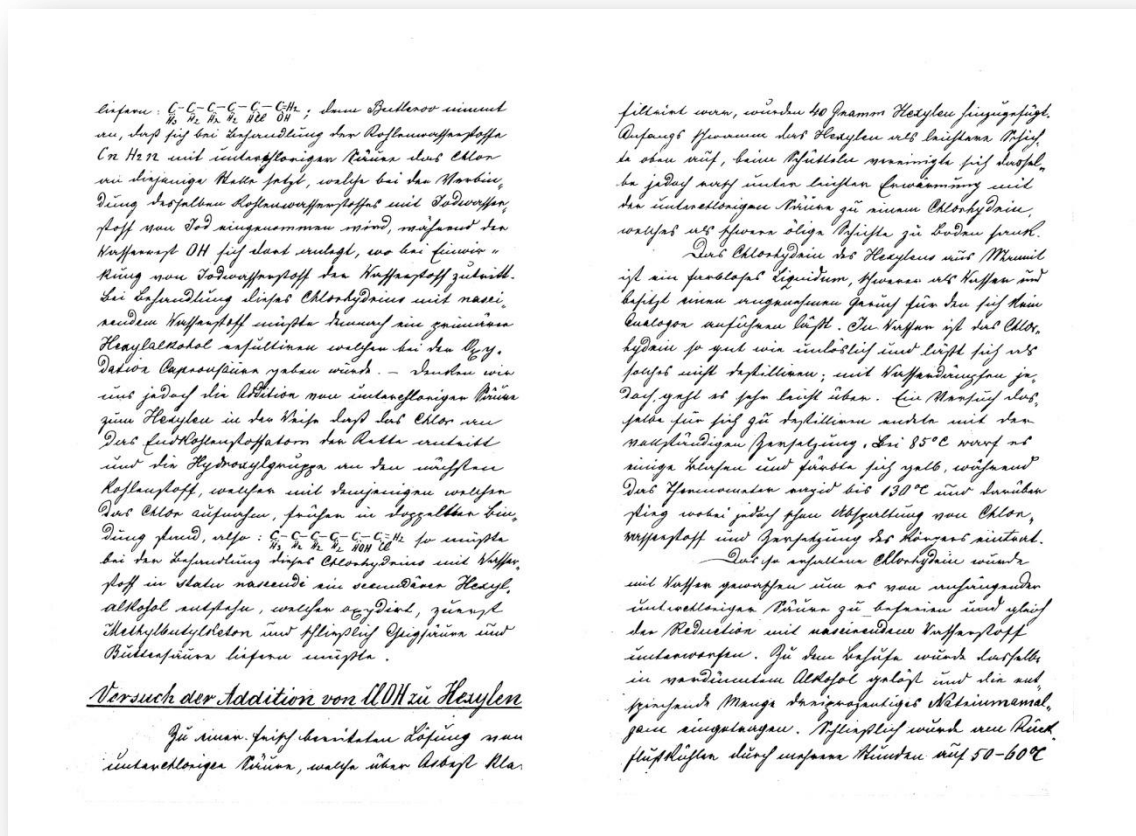 liefern: C-C-C-C-C-C=H2; denn Butlerov nimmt
H3 H2 H2 H2 HCl OH
an, daß sich bei Behandlung der Kohlenwasserstoffe
Cn H2n mit unterchloriger Säure das Chlor
an diejenige Stelle setzt, welche bei der Verbin„
dung desselben Kohlenwasserstoffes mit Jodwasser„
stoff von Jod eingenommen wird, während der
Wasserrest OH sich dort anlegt, wo bei Einwir„
kung von Jodwasserstoff der Wasserstoff zutritt.
Bei Behandlung dieses Chlorhydrins mit nasci„
rendem Wasserstoff müßte demnach ein primärer
Hexylalkohol resultiren welcher bei der Oxy„
dation Capronsäure geben würde. – Denken wir
uns jedoch die Addition von unterchloriger Säure
zum Hexylen in der Weise daß das Chlor an
das Endkohlenstoffatom der Kette antritt
und die Hydroxylgruppe an den nächsten
Kohlenstoff, welcher mit demjenigen welcher
das Chlor aufnahm, früher in doppelter Bin„
dung stand, also: C-C-C-C-C-C=H2 so müßte
H3 H2 H2 H2 HOH Cl
bei der Behandlung dieses Chlorhydrins mit Wasser„
stoff in statu nascendi ein secundärer Hexyl„
alkohol entstehn, welcher oxydirt, zuerst
Methylbutylketon und schließlich Essigsäure und
Buttersäure liefern müßte.
Versuch der Addition von ClOH zu Hexylen
Zu einer frisch bereiteten Lösung von
unterchloriger Säure, welche über Asbest kla„
filtrirt war, wurden 40 Gramm Hexylen hinzugefügt.
Anfangs schwamm das Hexylen als leichtere Schich„
te oben auf, beim Schütteln vereinigte sich dassel„
be jedoch rasch unter leichter Erwärmung mit
der unterchlorigen Säure zu einem Chlorhydrin,
welches als schwere ölige Schichte zu Boden sank.
Das Chlorhydrin des Hexylens aus Mannit
ist ein farbloses Liquidum, schwerer als Wasser und
besitzt einen angenehmen Geruch für den sich kein
Analogon anführen läßt. In Wasser ist das Chlor„
hydrin so gut wie unlöslich und läßt sich als
solches nicht destilliren; mit Wasserdämpfen je„
doch geht es sehr leicht über. Ein Versuch das„
selbe für sich zu destilliren endete mit der
vollständigen Zersetzung. Bei 85°C warf es
einige Blasen und färbte sich gelb, während
das Thermometer rapid bis 130°C und darüber
stieg wobei jedoch schon Abspaltung von Chlor„
wasserstoff und Zersetzung des Körpers eintrat.
Das so erhaltene Chlorhydrin wurde
mit Wasser gewaschen um es von anhängender
unterchloriger Säure zu befreien und gleich
der Reduction mit nascirendem Wasserstoff
unterworfen. Zu dem Behufe wurde dasselbe
in verdünntem Alkohol gelöst und die ent„
sprechende Menge dreiprozentiges Natriumamal„
gam eingetragen. Schließlich wurde am Rück„
flußkühler durch mehrere Stunden auf 50–60°C